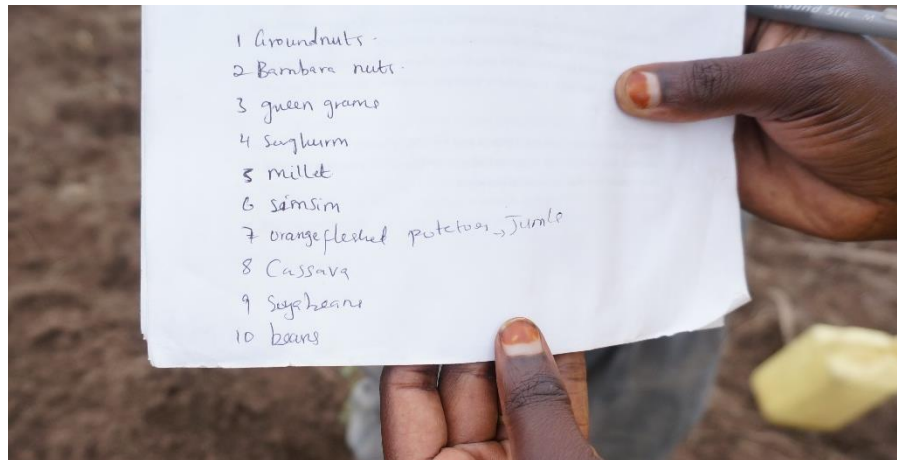 1 Groundnuts.
2 Bambara nuts.
3 green grams
4 Sorghurm
5 millet
6 simsim
7 orangefleshed potetoes, Jumlo
8 Cassava
9 Soyabeans
10 beans
Round Stic M